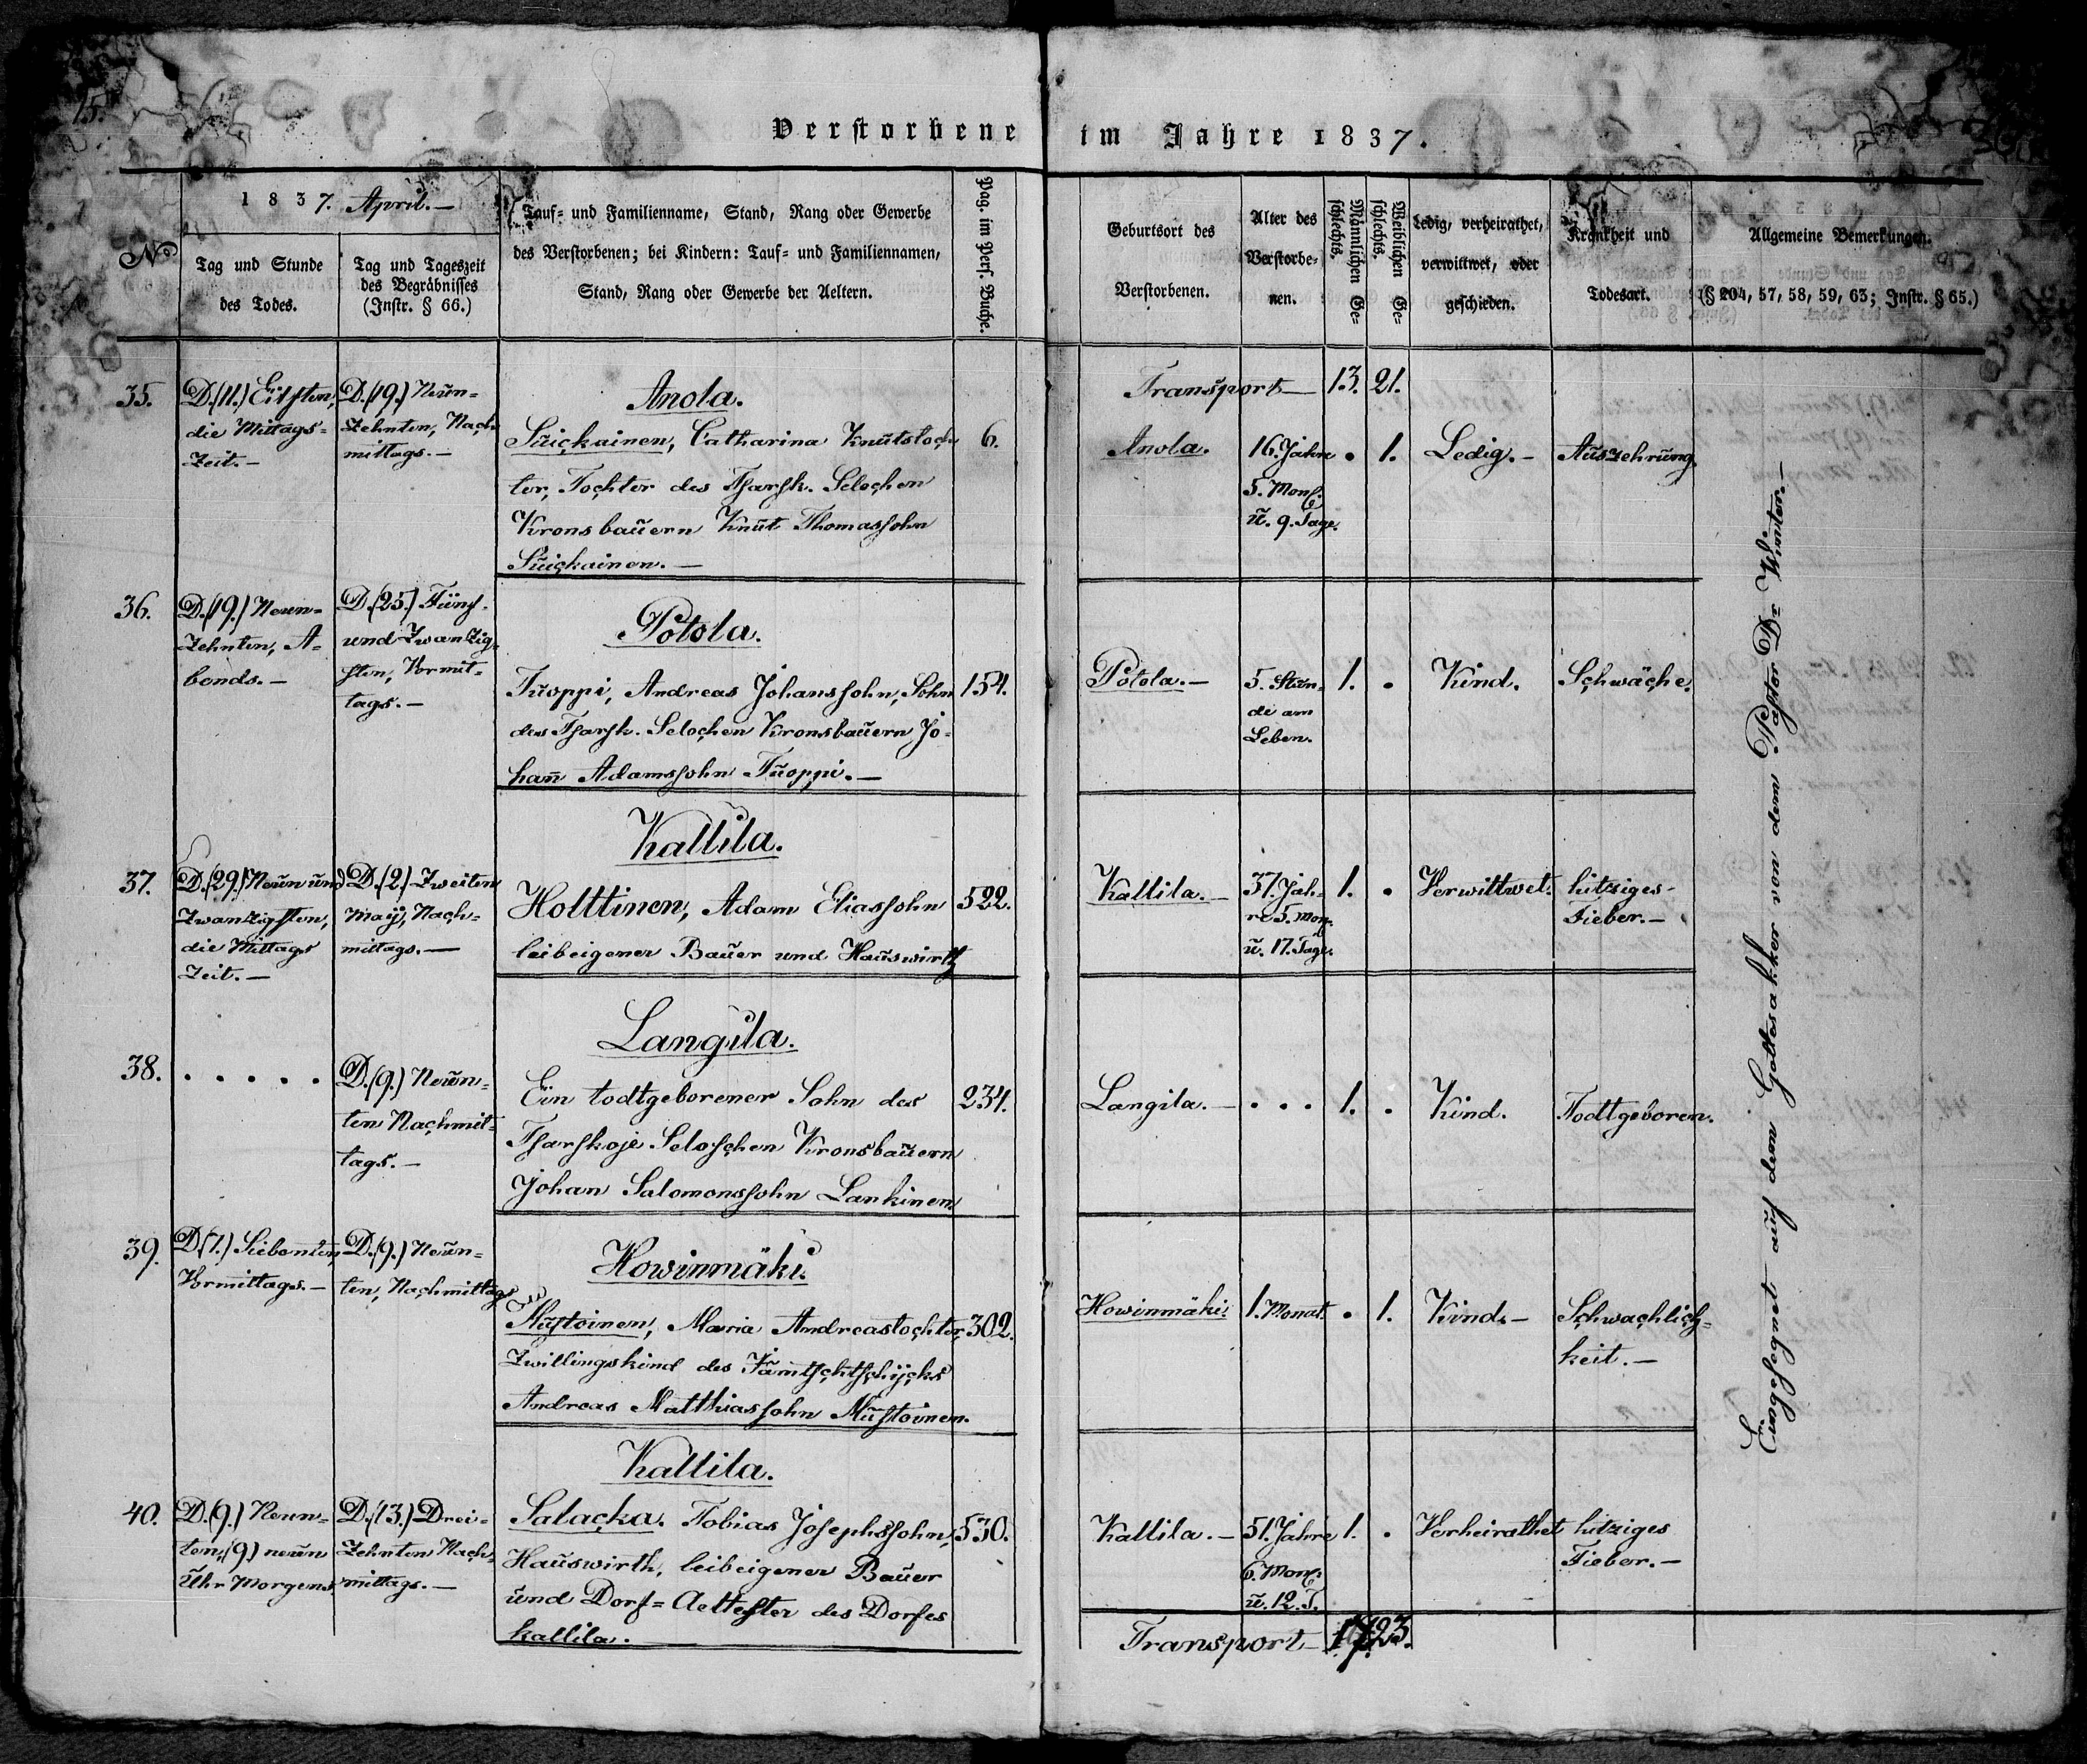 15.
Verstorbene im Jahre 1837.
No
1837. April. —
Tag und Stunde
des Todes.
Tag und Tageszeit
des Begräbnisses
(Instr. § 66.)
Tauf- und Familienname, Stand, Rang oder Gewerbe
des Verstorbenen; bei Kindern: Tauf- und Familiennamen,
Stand, Rang oder Gewerbe der Aeltern.
Pag. im Pers. Buche.
Geburtsort des
Verstorbenen.
Alter des
Verstorbe-
nen.
Männlichen Ge-
schlechts.
Weiblichen Ge-
schlechts.
Ledig, verheirathet,
verwittwet, oder
geschieden.
Krankheit und
Todesart.
Allgemeine Bemerkungen.
(§ 204, 57, 58, 59, 63; Instr. § 65.)
Transport — 13. 21.
35.
D. (11.) Eilften,
die Mittags-
Zeit. —
D. (19.) Neun-
zehnten, Nach-
mittags. —
Anola.
Suickainen, Catharina Knutstoch-
ter, Tochter des Tsarsk. Seloschen
Kronsbauern Knut Thomassohn
Suickainen. —
6.
Anola.
16. Jahre
5. Mon.
u. 9. Tage.
. 1.
Ledig. —
Auszehrung.
36.
D. (19.) Neun-
zehnten, A-
bends. —
D. (25.) Fünf-
und zwanzig-
sten, Vormit-
tags. —
Potola.
Tuoppi, Andreas Johanssohn, Sohn
des Tsarsk. Seloschen Kronsbauern Jo-
hann Adamssohn Tuoppi. —
154.
Potola. —
5. Stun-
de am
Leben.
1. .
Kind.
Schwäche.
37.
D. (29.) Neun und
zwanzigsten,
die Mittags
Zeit. —
D. (2.) Zweiten
Maij, Nach-
mittags. —
Kallila.
Holttinen, Adam Eliassohn
leibeigener Bauer und Hauswirth
522.
Kallila. —
37. Jah-
re 5. Mon.
u. 17. Tage.
1. .
Verwittwet.
hitziges
Fieber. —
38.
. . . . .
D. (9.) Neun-
ten Nachmit-
tags. —
Langila.
Ein todtgeborener Sohn des
Tsarskoje Seloschen Kronsbauern
Johan Salomonssohn Lankinen
234.
Langila. —
. . .
1. .
Kind.
Todtgeboren.
39.
D. (7.) Siebenten,
Vormittags. —
D. (9.) Neun-
ten, Nachmittags
Howinmäki.
Mustoinen, Maria Andreastochter,
Zwillingskind des Jämtschtschijcks
Andreas Matthiassohn Mustoinen.
302.
Howinmäki.
1. Monat.
. 1.
Kind. —
Schwachlich-
keit. —
40.
D. (9.) Neun-
ten, (9.) neun
Uhr Morgens.
D. (13.) Drei-
zehnten Nach-
mittags. —
Kallila.
Salacka. Tobias Josephssohn,
Hauswirth, leibeigener Bauer
und Dorf-Aeltester des Dorfes
Kallila. —
530.
Kallila. —
51. Jahre
6. Mon.
u. 12. T.
1. .
Verheirathet
hitziges
Fieber. —
Transport — 17. 23.
Eingesegnet auf dem Gottesakker von dem Pastor Dr. Winter. —